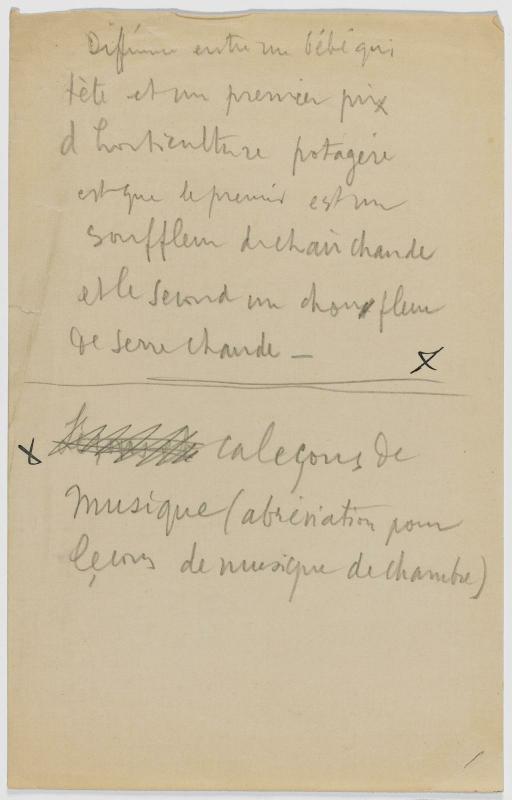 Différence entre un bébé qui
tète et un premier prix
d'horticulture potagère
est que le premier est un
souffleur de chair chaude
et le second un chou fleur
de serre chaude —
caleçons de
musique (abréviation pour
leçons de musique de chambre)